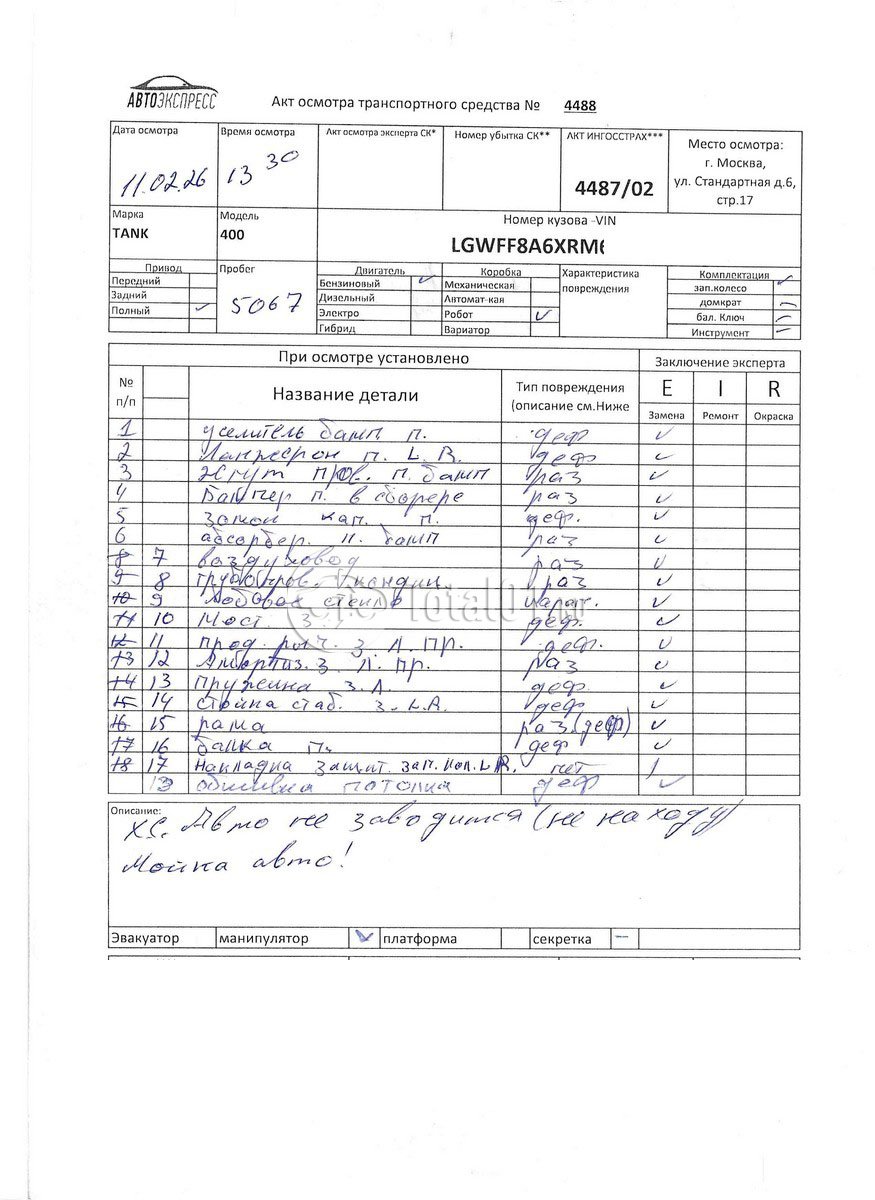 АВТОЭКСПРЕСС
Акт осмотра транспортного средства № 4488
Дата осмотра
11.02.26
Время осмотра
13 30
Акт осмотра эксперта СК*
Номер убытка СК**
АКТ ИНГОССТРАХ***
4487/02
Место осмотра:
г. Москва,
ул. Стандартная д.6,
стр.17
Марка
TANK
Модель
400
Номер кузова -VIN
LGWFF8A6XRM6
Привод
Передний
Задний
Полный ✓
Пробег
5067
Двигатель
Бензиновый ✓
Дизельный
Электро
Гибрид
Коробка
Механическая
Автомат-кая
Робот ✓
Вариатор
Характеристика
повреждения
Комплектация
зап.колесо ✓
домкрат –
бал. Ключ –
Инструмент –
При осмотре установлено
Заключение эксперта
№
п/п
Название детали
Тип повреждения
(описание см.Ниже
E I R
Замена Ремонт Окраска
1 усилитель бамп п. деф ✓
2 п. L.R. деф ✓
3 Жгут пров. п. бамп раз ✓
4 Бампер п. в сборере раз ✓
5 Замок кап. п. деф. ✓
6 абсорбер. п. бамп раз ✓
8 7 воздуховод раз ✓
9 8 кондиц. раз ✓
10 9 Лобовое стекло царап. ✓
11 10 Мост З деф. ✓
12 11 прод. рыч. З Л. ПР. деф. ✓
13 12 Амортиз. З Л. пр. раз ✓
14 13 Пружина З Л. деф. ✓
15 14 Стойка стаб. З. L.R. деф ✓
16 15 рама раз (деф) ✓
17 16 балка П. деф ✓
18 17 Накладка защит. зап. кол. L.R. нет
обшивка потолка деф ✓
Описание:
Х/С. Авто не заводится (не на ходу)
Мойка авто!
Эвакуатор манипулятор ✓ платформа секретка –